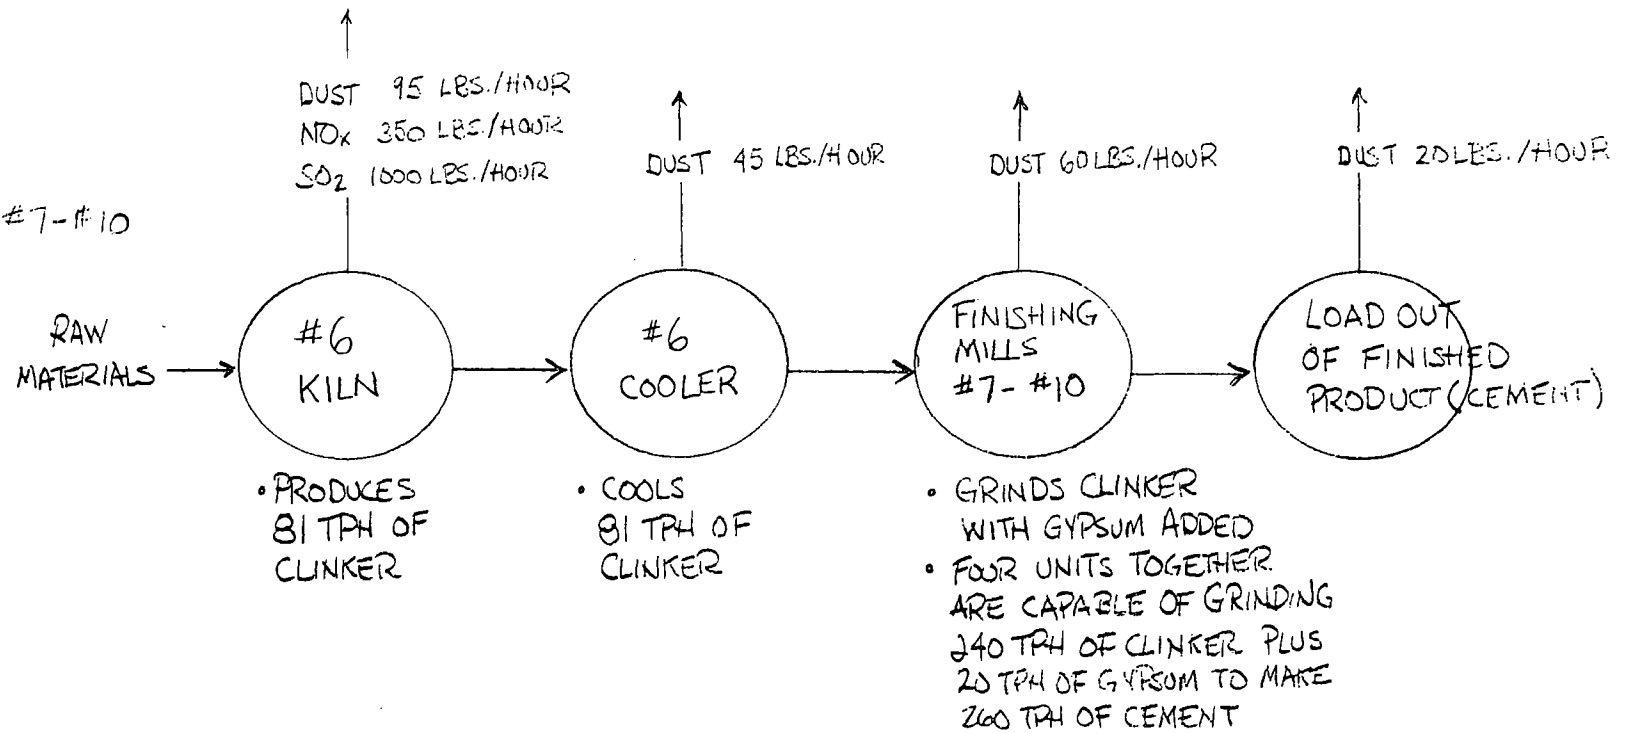 DUST 95 LBS./HOUR
NOx 350 LBS./HOUR
SO2 1000 LBS./HOUR
DUST 45 LBS./HOUR
DUST 60 LBS./HOUR
DUST 20 LBS./HOUR
#7-#10
RAW
MATERIALS
#6
KILN
#6
COOLER
FINISHING
MILLS
#7-#10
LOAD OUT
OF FINISHED
PRODUCT (CEMENT)
• PRODUCES
81 TPH OF
CLINKER
• COOLS
81 TPH OF
CLINKER
• GRINDS CLINKER
WITH GYPSUM ADDED
• FOUR UNITS TOGETHER
ARE CAPABLE OF GRINDING
240 TPH OF CLINKER PLUS
20 TPH OF GYPSUM TO MAKE
260 TPH OF CEMENT